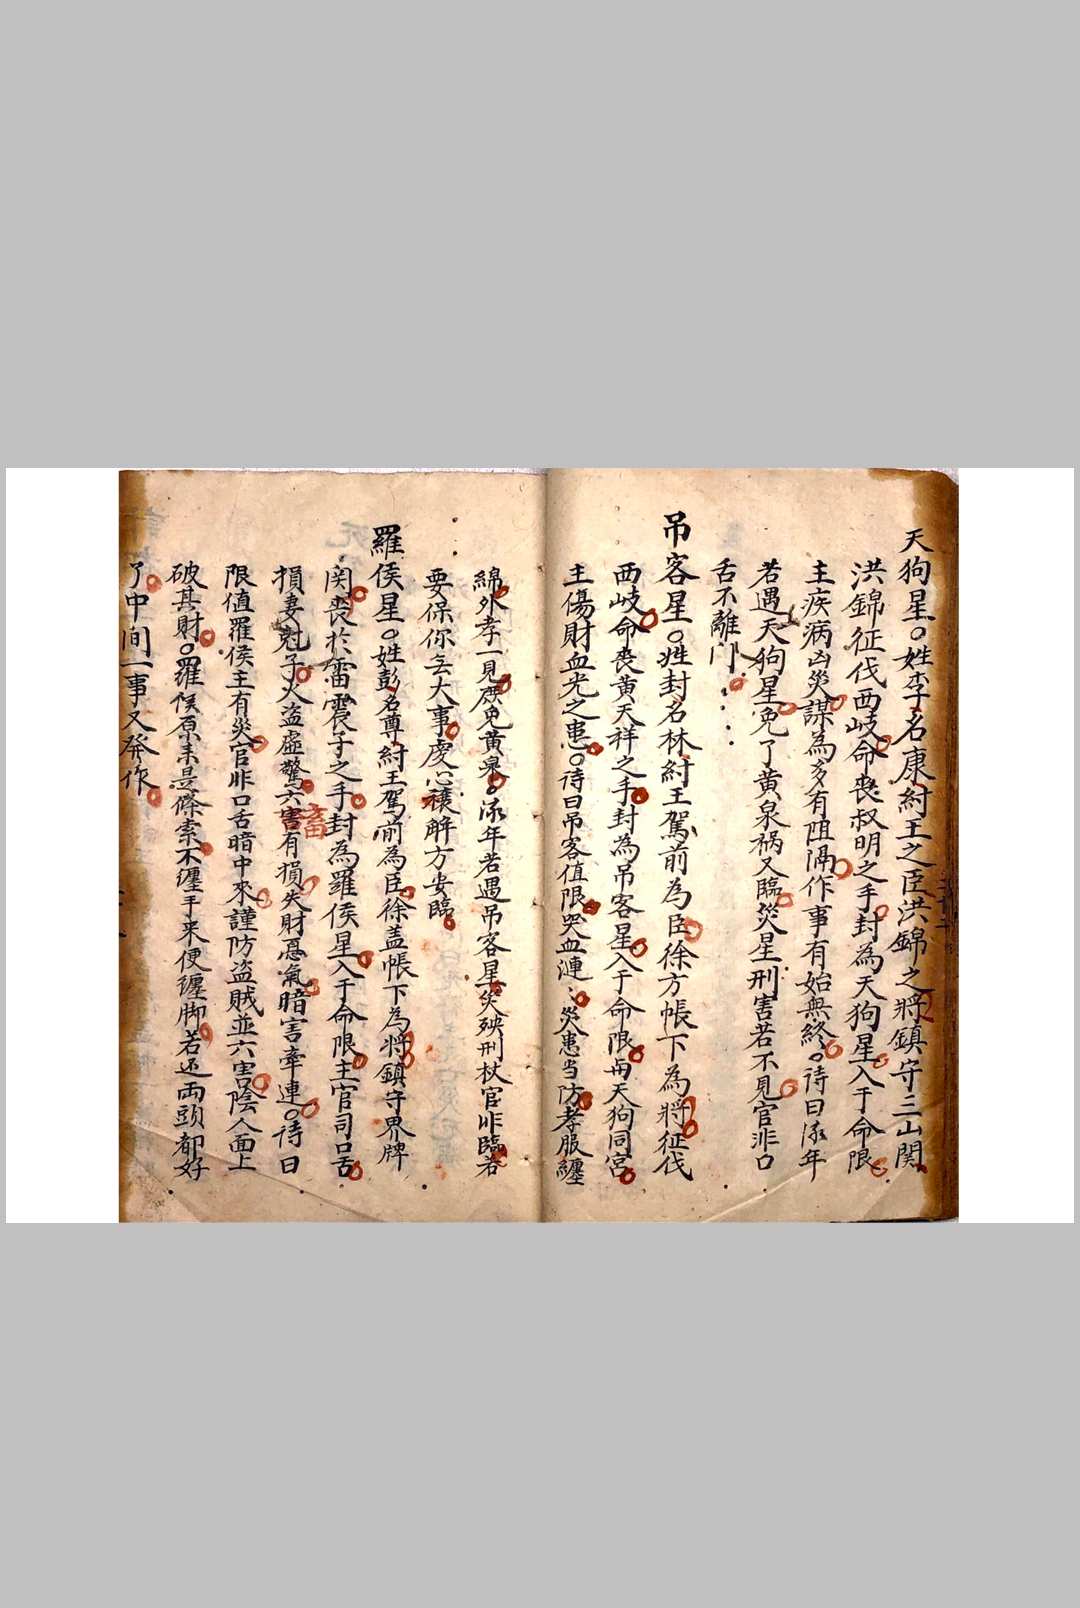 天狗星○姓李名康紂王之臣洪錦之將鎮守三山関
洪錦征伐西岐命喪叔明之手封為天狗星入于命限
主疾病凶災謀為多有阻隔作事有始無終○诗曰流年
若遇天狗星免了黄泉祸又臨災星刑害若不見官非口
舌不離门
吊客星○姓封名林紂王駕前為臣徐方帳下為將征伐
西岐命喪黄天祥之手封為吊客星入于命限再天狗同宮
主傷財血光之患○诗曰吊客值限哭血漣災患当防孝服纏
綿外孝一見庶免黄泉○流年若遇吊客星災殃刑杖官非臨若
要保你無大事虔心禳解方安臨
羅侯星○姓彭名尊紂王駕前為臣徐盖帳下為將鎮守界牌
関喪於雷震子之手封為羅侯星入于命限主官司口舌
損妻尅子火盗虛驚六害畜有損失財惡氣暗害牽連○诗曰
限值羅侯主有災官非口舌暗中來謹防盗賊並六害陰人面上
破其財○羅侯原来是條索不纒手来便纒脚若还両頭都好
了中间一事又發作